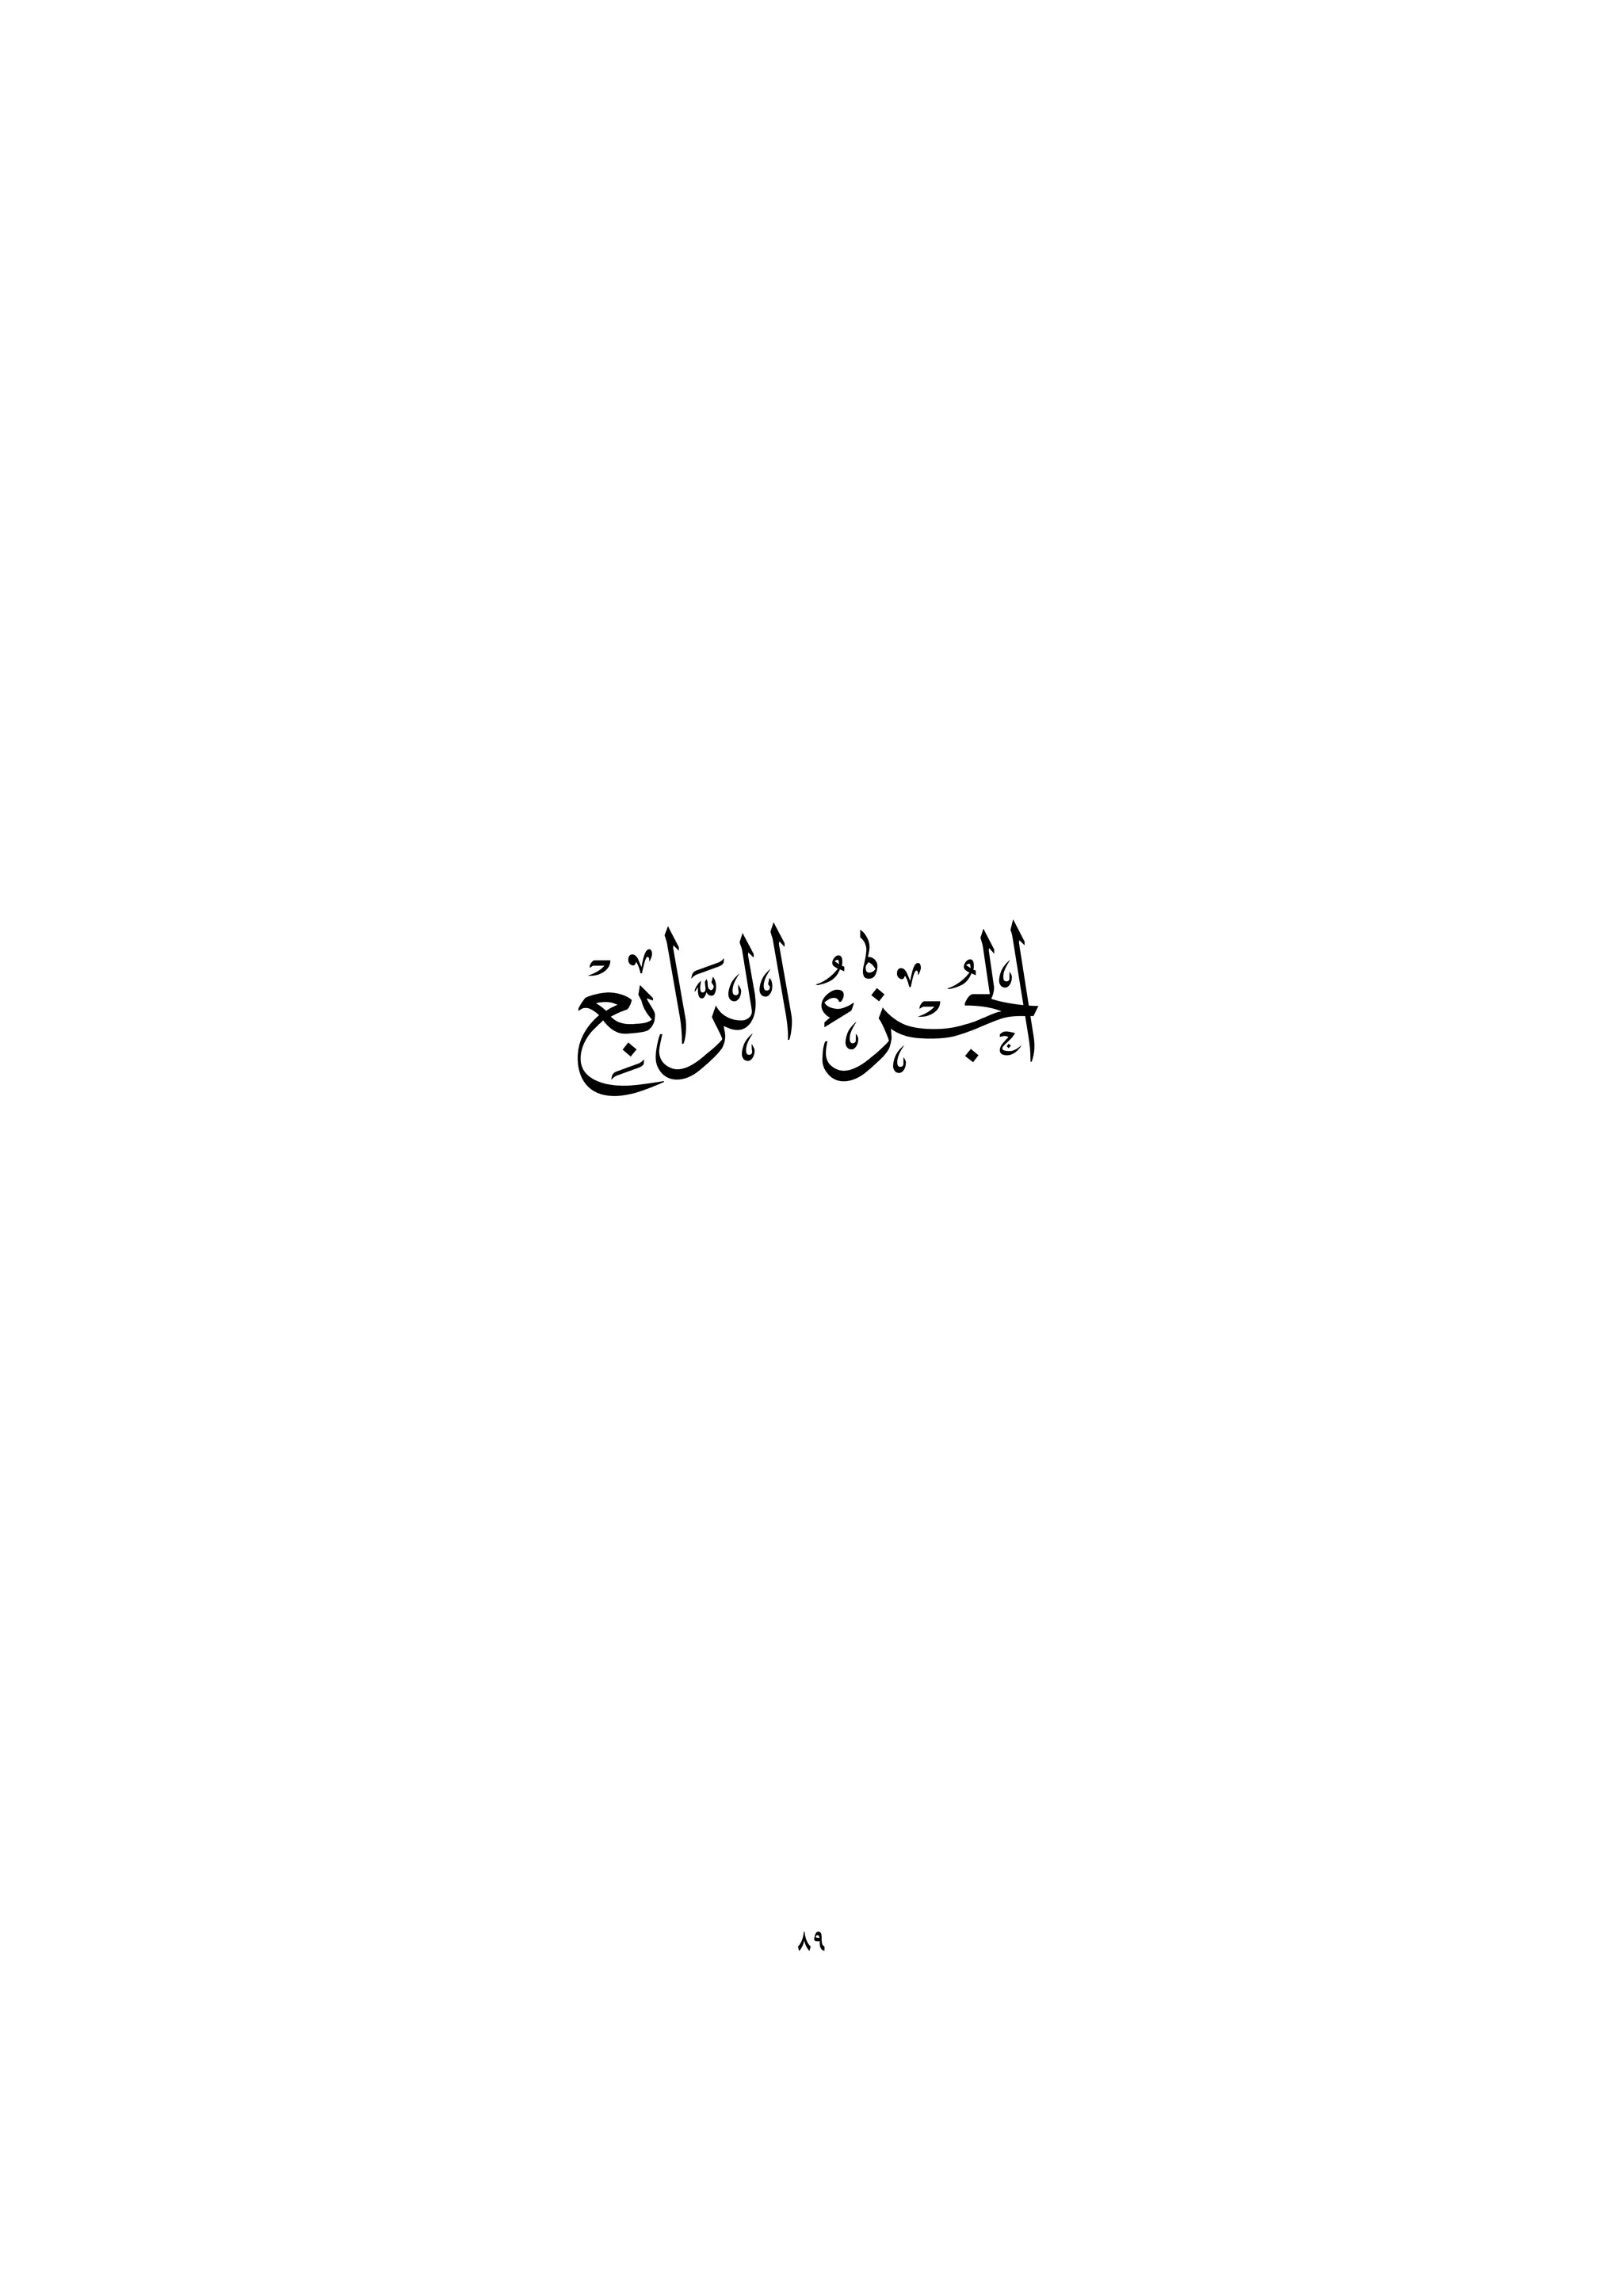 الجُزْءُ الرَّابِع
٨٩